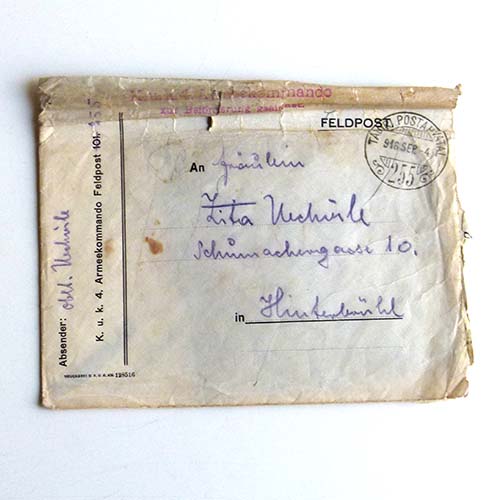 K. u. k. 4. Armeekommando
zur Beförderung geeignet
FELDPOST
TÁBORI POSTAHIVATAL
916 SEP. 4
255
An Fräulein
Zita
Schumachergasse 10.
in Hinterbrühl
Absender: Oblt.
K. u. k. 4. Armeekommando Feldpost 255
128516